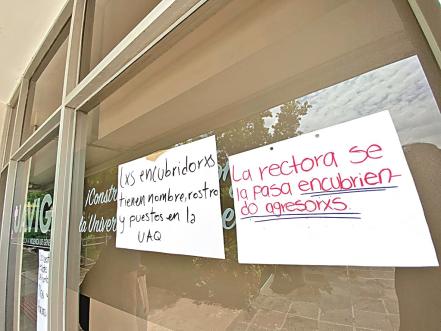 Lxs encubridorxs
tienen nombre, rostro
y puestos en la
UAQ
La rectora se
la pasa encubrien-
do agresorxs.
¡Constru
da Univer
UAVIG